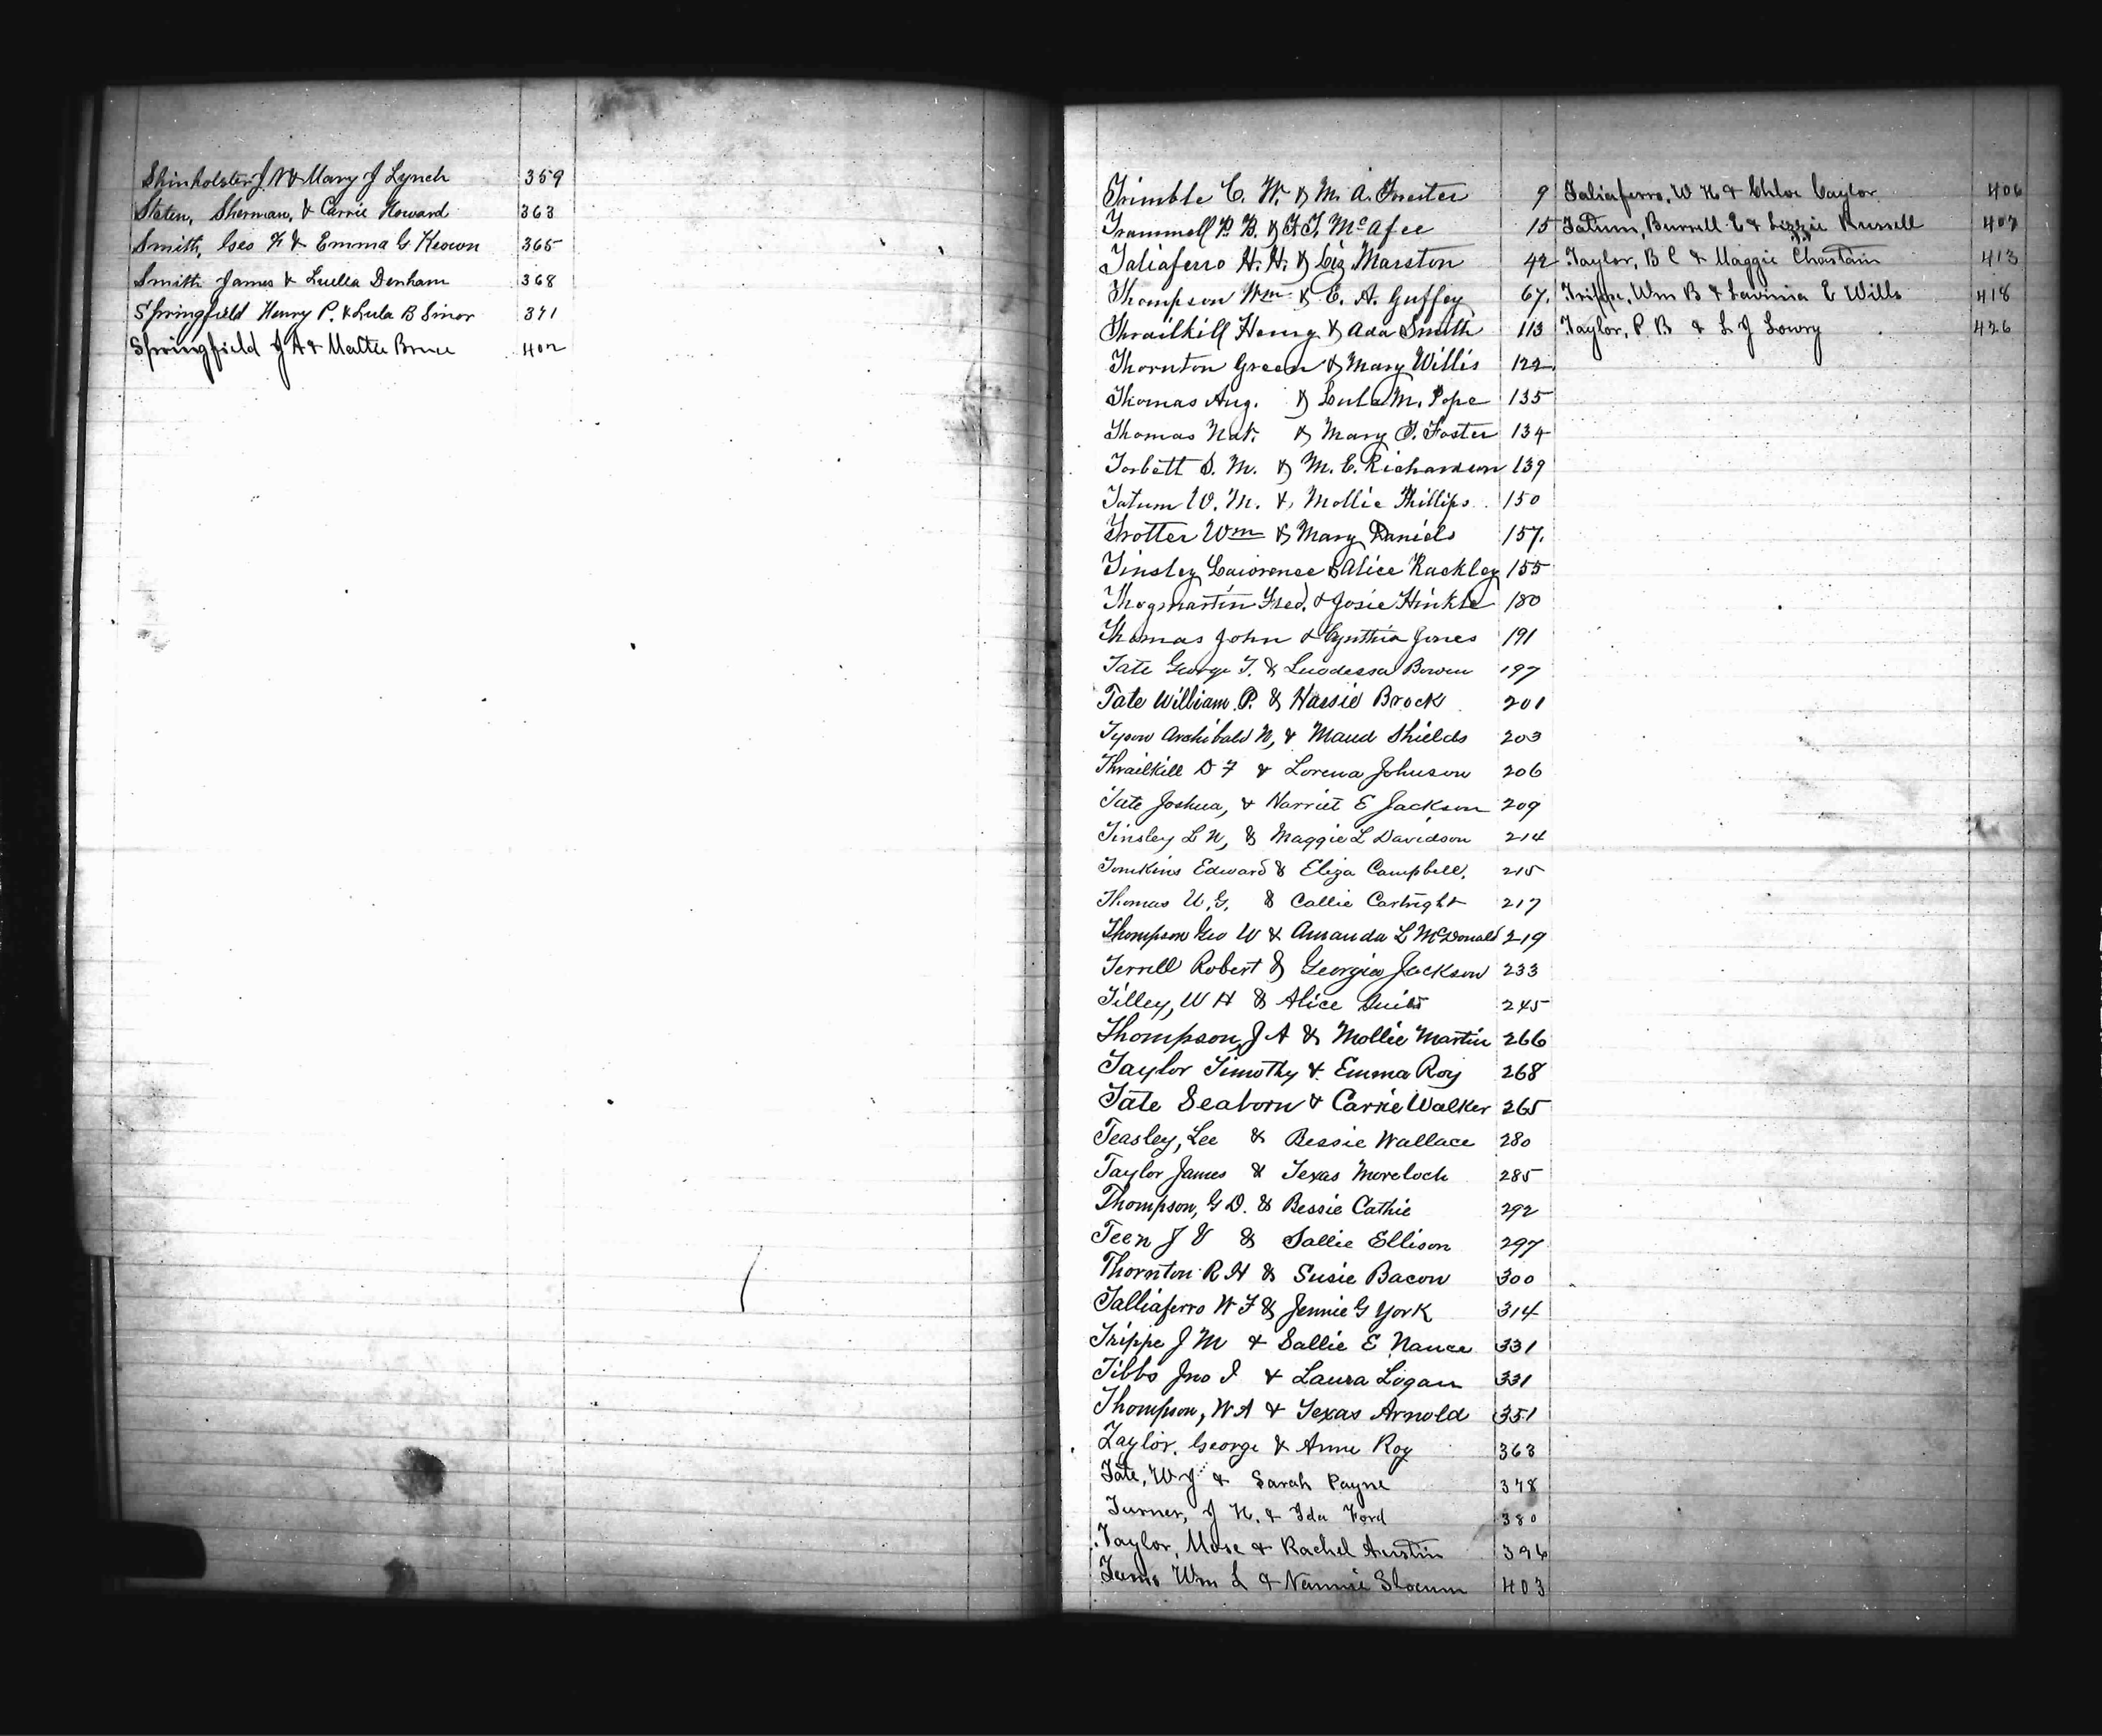 Shinholster J N & Mary J Lynch 359
Staten, Sherman, & Carrie Howard 363
Smith, Geo F & Emma G Keown 365
Smith James & Luella Denham 368
Springfield Henry P. & Lula B Sinor 371
Springfield J A & Mattie Bruce 402
Trimble C. W. & M. A. Forester 9
Trammell P. B. & F. T. McAfee 15
Taliaferro H. H. & Liz Marston 42
Thompson Wm & E. A. Guffey 67.
Thrailkill Henry & Ada Smith 113
Thornton Green & Mary Willis 122
Thomas Aug. & Lula M. Pope 135
Thomas Nat. & Mary J. Foster 134
Torbett S. M. & M. E. Richardson 139
Tatum W. M. & Mollie Phillips 150
Trotter Wm & Mary Daniels 157.
Tinsley Lawrence & Alice Rackley 155
Thogmartin Fred. & Josie Hinkle 180
Thomas John & Cynthia Jones 191
Tate George T. & Leodessa Bowen 197
Tate William P. & Hassie Brock 201
Tyson Archibald N, & Maud Shields 203
Thrailkill D F & Lorena Johnson 206
Tate Joshua, & Harriet E Jackson 209
Tinsley L N, & Maggie L Davidson 214
Tomkins Edward & Eliza Campbell. 215
Thomas U. G. & Callie Cartright 217
Thompson Geo W & Amanda L McDonald 219
Terrell Robert & Georgia Jackson 233
Tilley, W H & Alice 245
Thompson, J A & Mollie Martin 266
Taylor Timothy & Emma Roy 268
Tate Seaborn & Carrie Walker 265
Teasley, Lee & Bessie Wallace 280
Taylor James & Texas Moreloch 285
Thompson, G D. & Bessie Cathie 292
Teen J V & Sallie Ellison 297
Thornton R H & Susie Bacon 300
Talliaferro W F & Jennie G York 314
Trippe J M & Sallie E Nance 331
Tibbs Jno I & Laura Logan 331
Thompson, W A & Texas Arnold 351
Taylor, George & Anne Roy 363
Tate, W J & Sarah Payne 378
Turner, J H. & Ida Ford 380
Taylor, Mose & Rachel Austin 396
Wm L & Nannie Slocum 403
Taliaferro, W H & Chloe Caylor 406
Tatum, Burrell E & Lizzie Russell 407
Taylor, B C & Maggie Chastain 413
Trippe, Wm B & Lavinia E Wills 418
Taylor, P B & L J Lowry 426